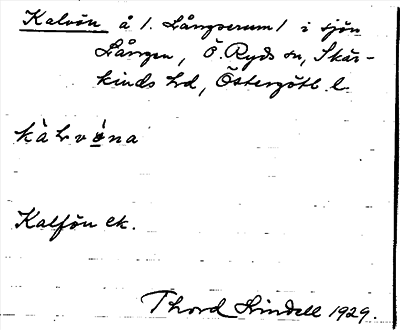 Kalvön å /. Långserum/ i sjön
Lången, Ö. Ryds sn, Skär-
kinds hd, Östergötl. l.
kàLvö́na
Kalfön ek.
Thord Lindell 1929.